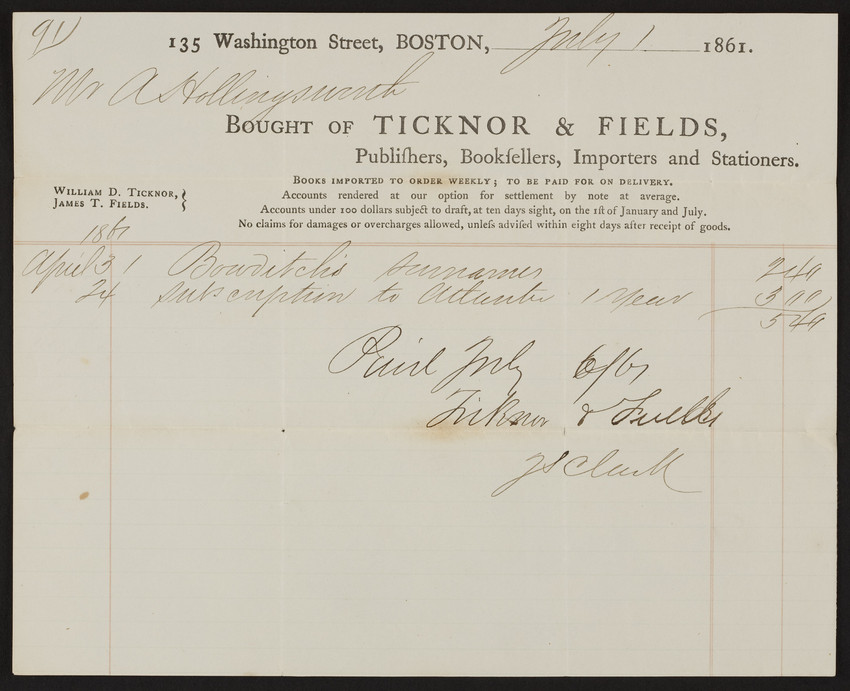 91)
135 Washington Street, BOSTON, July 1 1861.
Mr A Hollingsworth
BOUGHT OF TICKNOR & FIELDS,
Publiſhers, Bookſellers, Importers and Stationers.
WILLIAM D. TICKNOR,
JAMES T. FIELDS. }
BOOKS IMPORTED TO ORDER WEEKLY; TO BE PAID FOR ON DELIVERY.
Accounts rendered at our option for settlement by note at average.
Accounts under 100 dollars subject to draft, at ten days sight, on the 1ſt of January and July.
No claims for damages or overcharges allowed, unleſs adviſed within eight days after receipt of goods.
1861
April 3 1 Bowditch's surnames 2 40
24 subscription to Atlantic 1 Year 3 00
5 40
Paid July 6/61
Ticknor & Fields